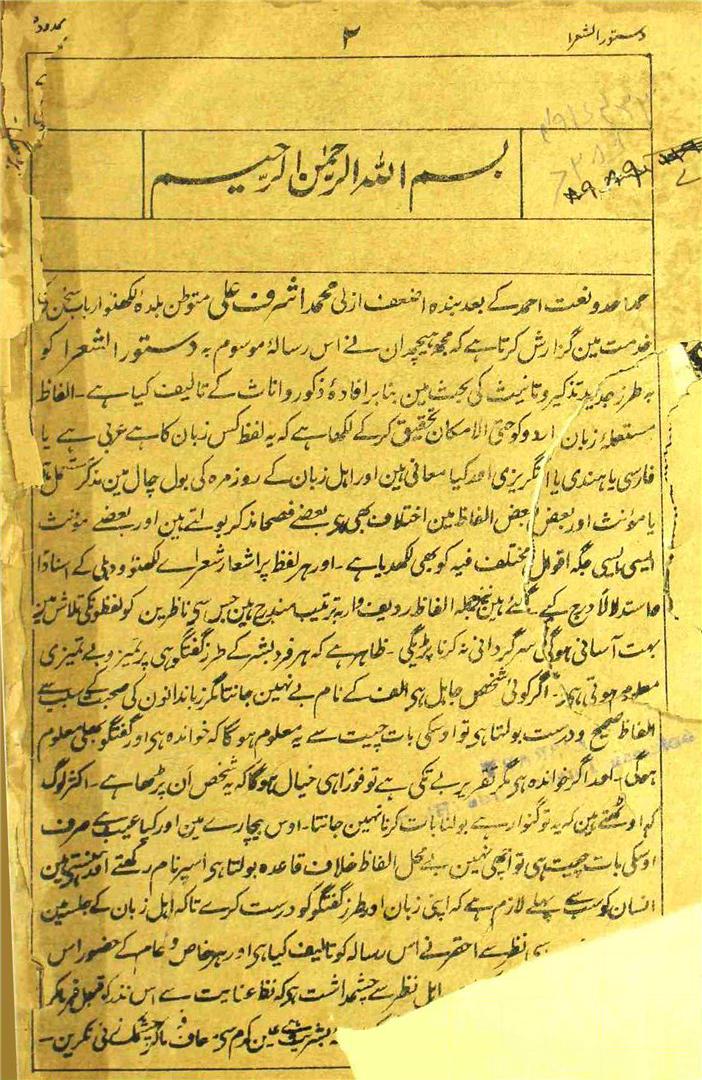 دستور الشعرا ۲
بسم اللہ الرحمٰن الرحیم
حمد احد و نعت احمد کے بعد بندہ اضعف ازلی محمد اشرف علی متوطن بلدۂ لکھنؤ ارباب سخن کی
خدمت مین گزارش کرتا ہے کہ مجھ ہیچمدان نے اس رسالۂ موسوم بہ دستور الشعرا کو
بہ طرز جدید تذکیر و تانیث کی بحث مین بنا بر افادۂ ذکور و اناث کے تالیف کیا ہے۔ الفاظ
مستعملۂ زبان اردو کو حتی الامکان تحقیق کرکے لکھا ہے کہ یہ لفظ کس زبان کا ہے عربی ہے یا
فارسی یا ہندی یا انگریزی اور کیا معانی ہین اور اہل زبان کے روز مرہ کی بول چال مین مذکر مستعمل ہے
یا مؤنث اور بعض بعض الفاظ مین اختلاف بھی ہی بعضے فصحا مذکر بولتے ہین اور بعضے مؤنث
ایسی ایسی جگہ اقوال مختلف فیہ کو بھی لکھدیا ہے۔ اور ہر لفظ پر اشعار شعراے لکھنؤ و دہلی کے اسناداً
و استدلالاً درج کیے گئے ہین جملہ الفاظ ردیف وار بہ ترتیب مندرج ہین جس سی ناظرین کو لفظونکی تلاش مین
بہت آسانی ہوگی سرگردانی نہ کرنا پڑیگی۔ ظاہر ہے کہ ہر فرد بشر کے طرز گفتگو ہی پر تمیز و بے تمیزی
معلوم ہوتی ہی۔ اگر کوئی شخص جاہل ہی الف کے نام بے نہین جانتا مگر زباندانون کی صحبت کے سبب سے
الفاظ صحیح و درست بولتا ہی تو اوسکی بات چیت سے یہ معلوم ہوگا کہ خواندہ ہی اور گفتگو بھلی معلوم
ہوگی۔ اور اگر خواندہ ہی مگر تقریر بے تکی ہے تو فوراً ہی خیال ہوگا کہ یہ شخص اَن پڑھا ہے۔ اکثر لوگ
کہ اوٹھتے ہین کہ یہ تو گنوار ہے بولنا بات کرنا نہین جانتا۔ اوس بیچارے مین اور کیا عیب ہے صرف
اوسکی بات چیت ہی تو اچھی نہین بے محل الفاظ خلاف قاعدہ بولتا ہی اسپر نام رکھتے اور ہنستے ہین
انسان کو سب سے پہلے لازم ہے کہ اپنی زبان اور طرز گفتگو کو درست کرے تاکہ اہل زبان کے جلسے مین
نظر سے احقر نے اس رسالہ کو تالیف کیا ہی اور ہر خاص و عام کے حضور اس
اہل نظر سے چشمداشت ہی کہ نظر عنایت سے اس نذر کو قبول فرماکر
بشریت عین کرم سی معاف فرماکر چشمک زنی نکرین۔